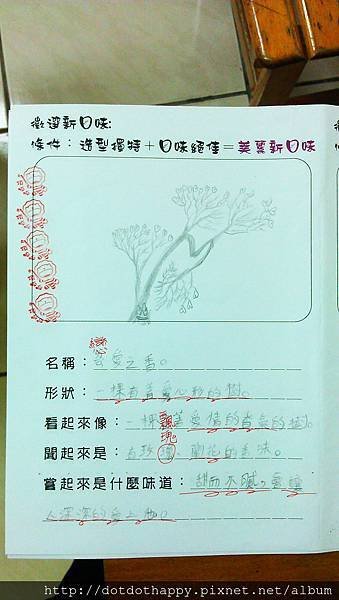 徵選新口味:
條件：造型獨特＋口味絕佳＝美裏新口味
戀
名稱：戀愛之香。
形狀：一棵有著愛心形的樹。
飄
看起來像：一棵 著愛情的香氣的樹。
瑰
聞起來是：有玫瑰、蘭花的香味。
嘗起來是什麼味道：甜而不膩，會讓
人深深的愛上它。
http://dotdothappy.pixnet.net/album